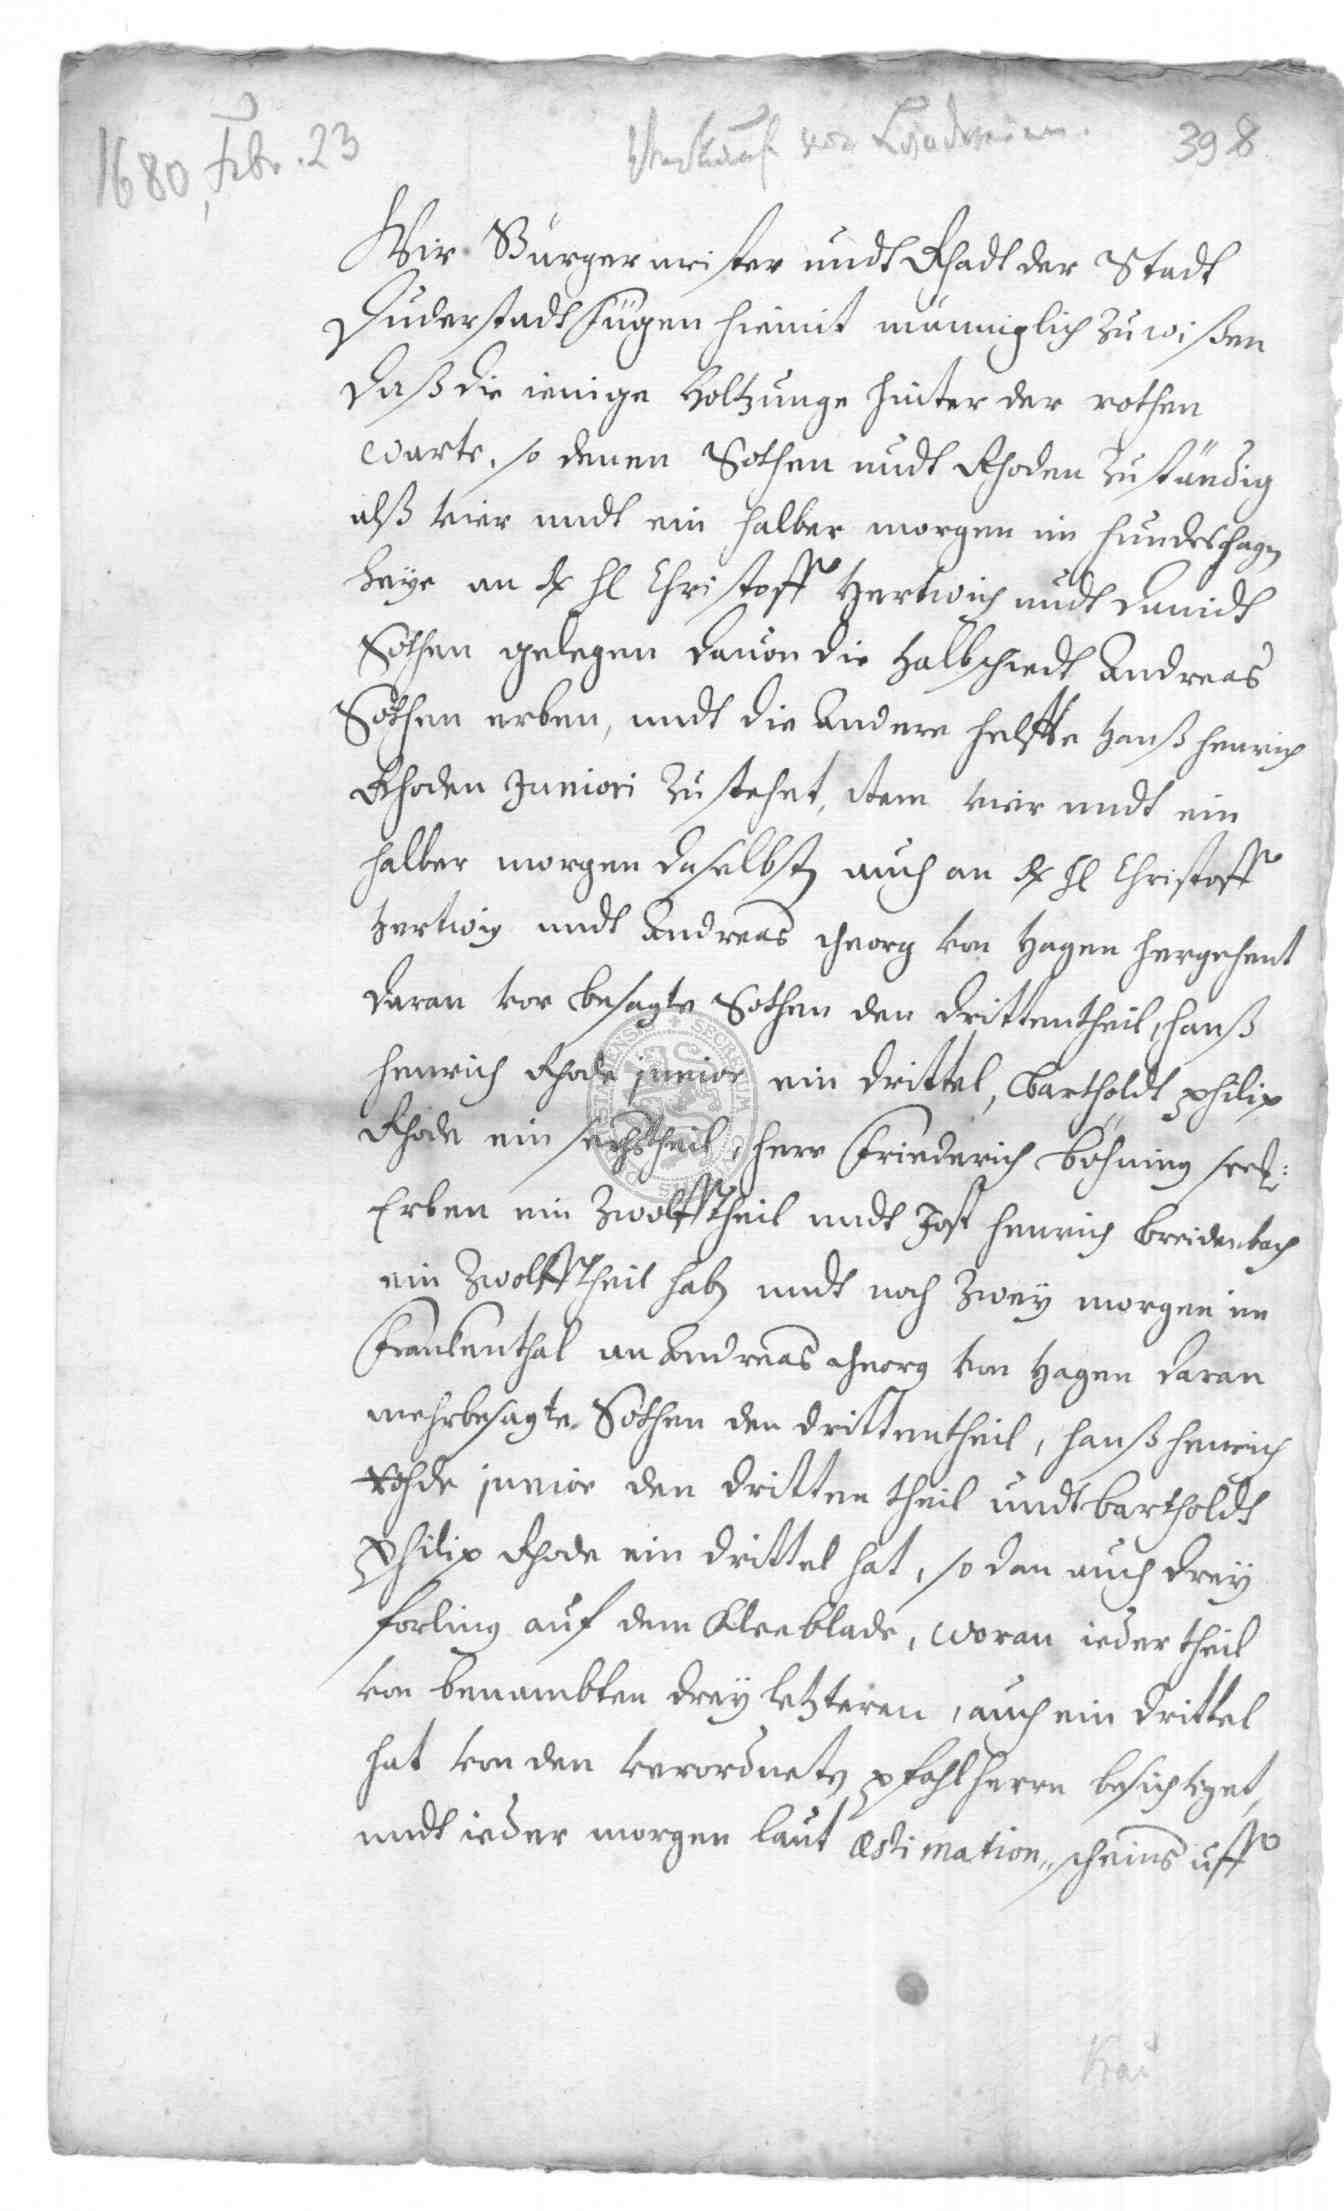 1680, Febr. 23
Verkauf von Ländereien.
398
Wir Bürgermeister undt Rhadt der Stadt
Duderstadt fügen hiemit männiglich zu wißen
daß die ienige Holtzunge hinter der rothen
warte, so denen Sothen undt Rhoden zuständig
alß vier undt ein halber morgen im hundeshagen
an Christoff Hertwich undt Davidt
Sothen gelegen davon die Halbschiedt Andreas
Sothen erben, undt die Andere helffte Hanß henrich
Rhoden Juniori zustehet, item vier undt ein
halber morgen daselbst auch an Christoff
Hertwig undt Andreas Georg von Hagen hergehent
daran vor besagte Sothen den drittentheil, hanß
henrich Rhode junior ein drittel, Bartholdt philip
Rhode ein sechstheil, herr Friederich Böhning seel:
Erben ein Zwolfftheil undt Jost henrich breidenbach
ein Zwolfftheil haben undt noch Zwey morgen im
Frankenthal an Andreas Georg von Hagen daran
mehrbesagte Sothen den drittentheil, hanß henrich
rohde junior den dritten theil undt bartholdt
Philip Rhode ein drittel hat, so dan auch drey
forling auf dem Kleeblade, woran ieder theil
von benambten drey letzteren, auch ein drittel
hat von den verordneten pfahlherrn besichtiget,
undt ieder morgen laut æstimation, scheins uff
SECRETUM